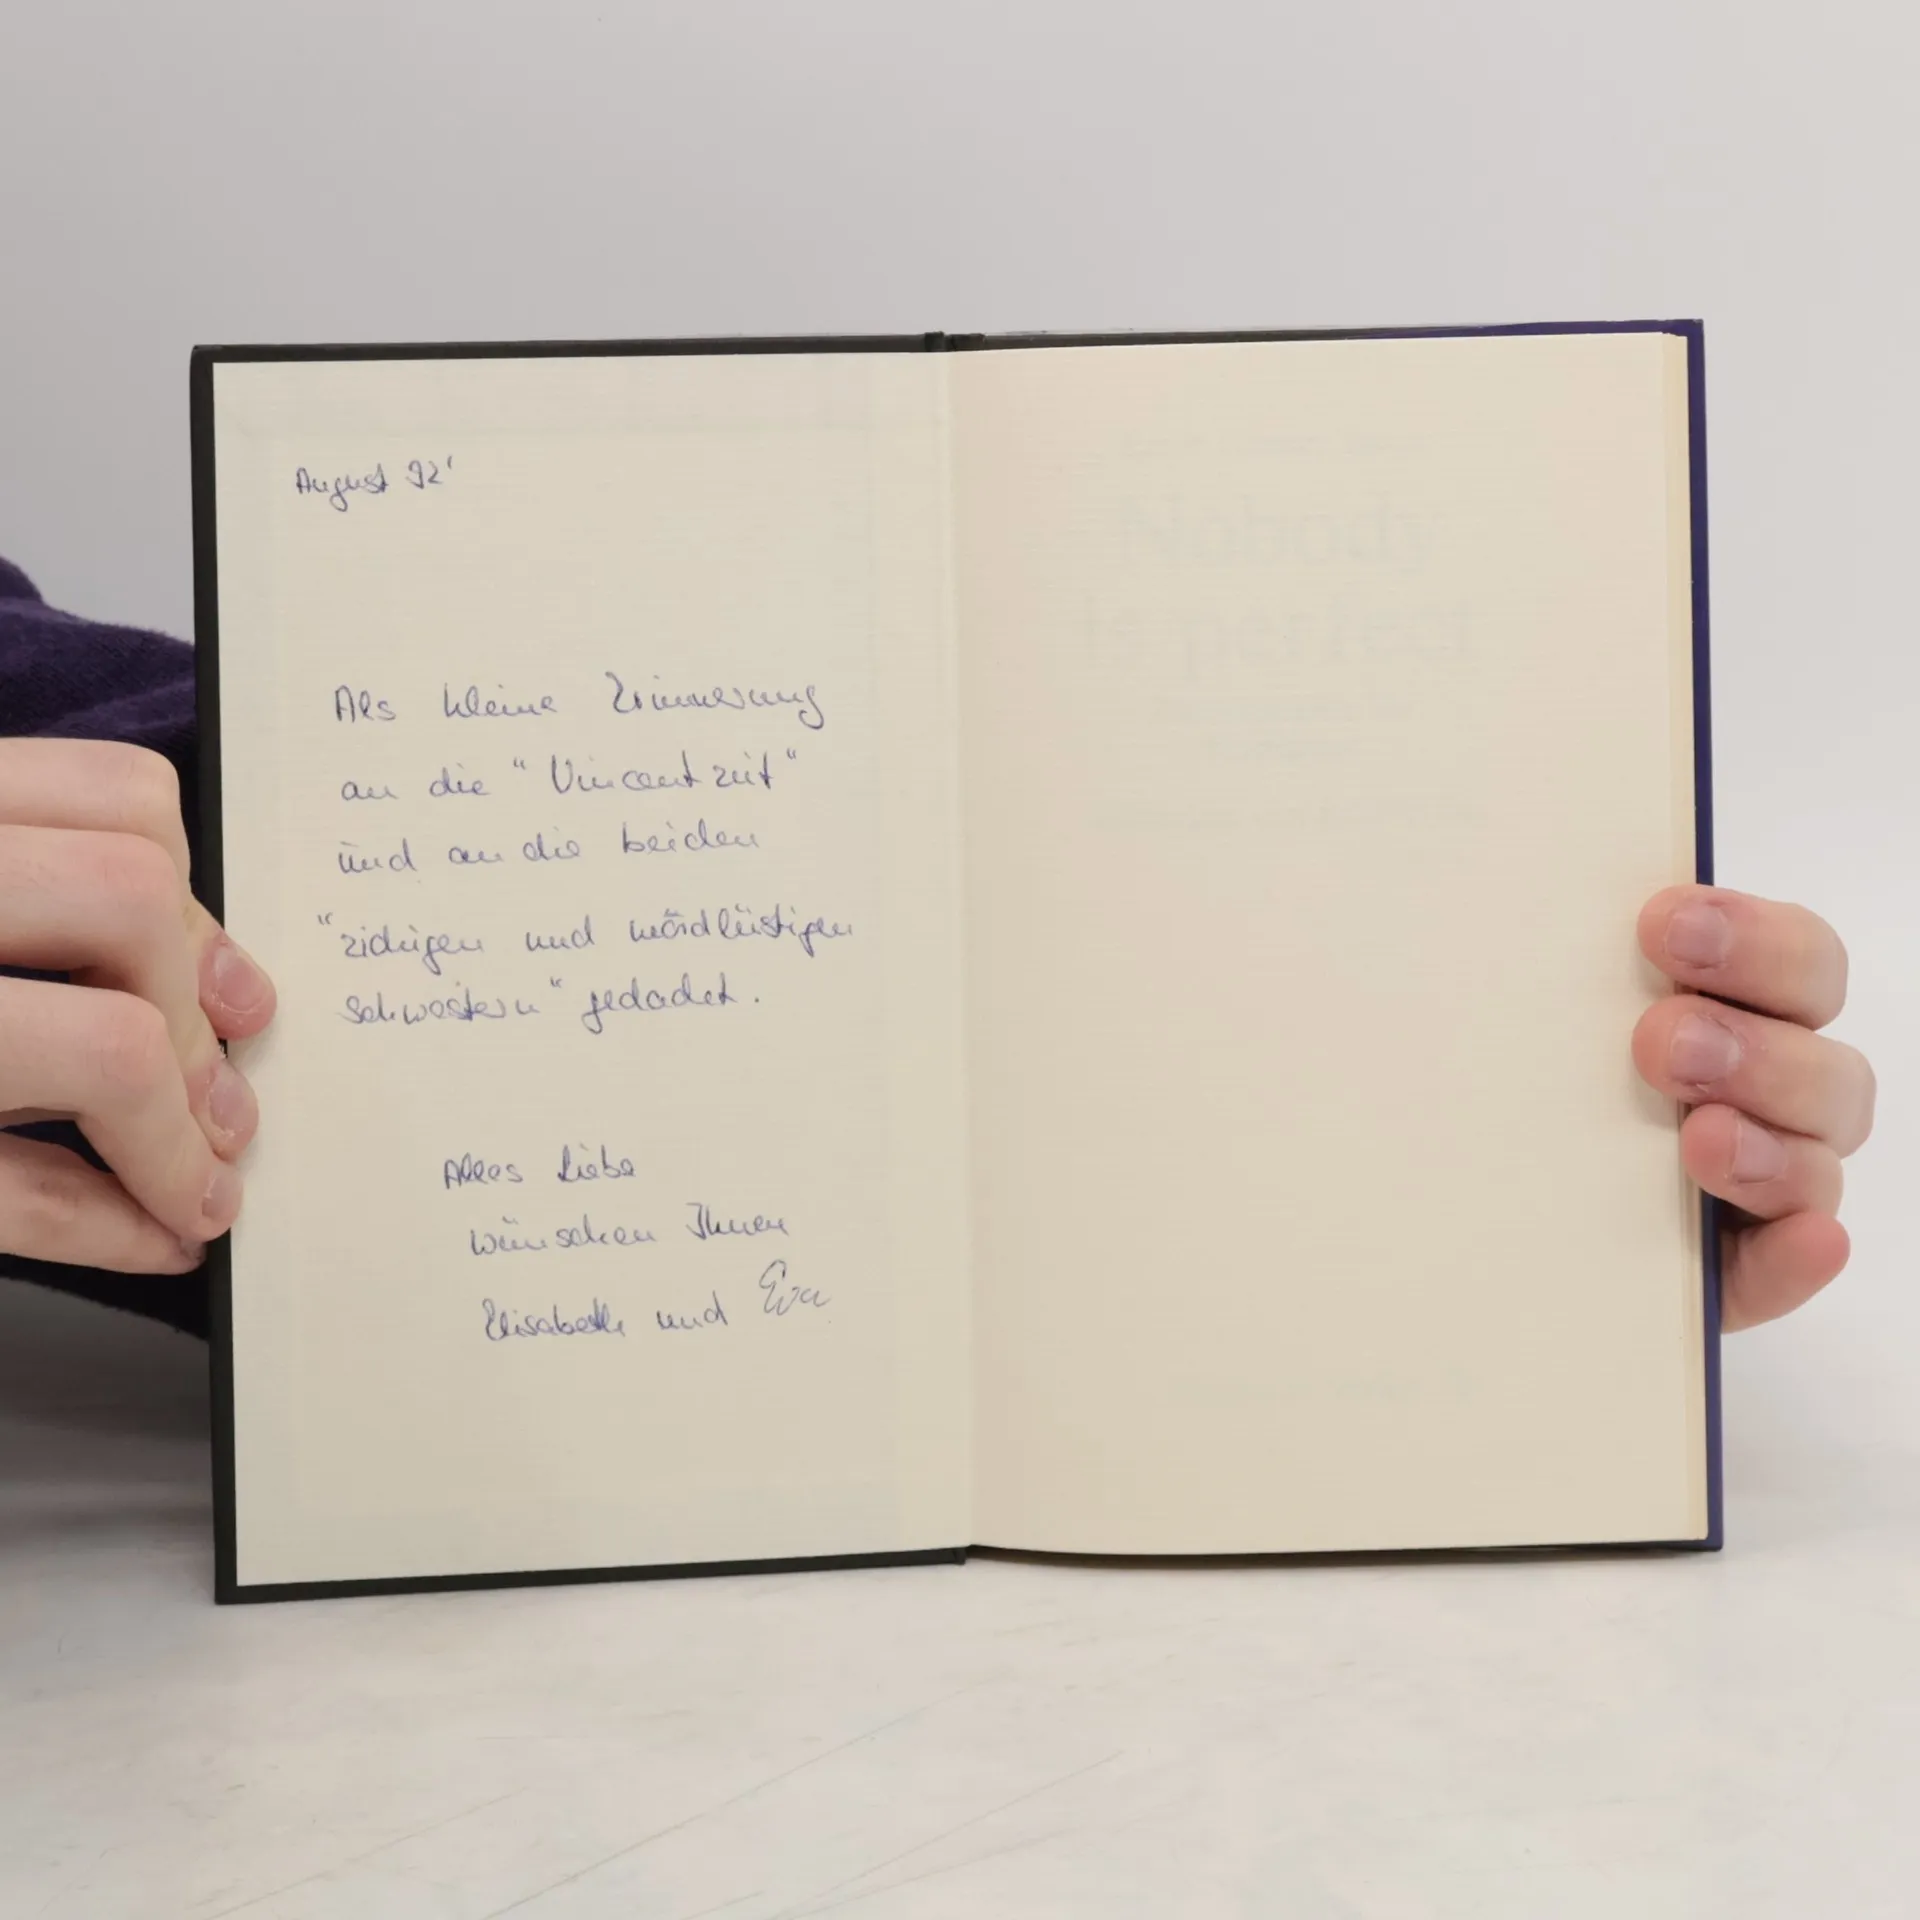 August 92'
Als kleine Erinnerung
an die "Vincentzeit"
und an die beiden
"zickigen und mordlüstigen
Schwestern" gedacht.
Alles Liebe
wünschen Ihnen
Elisabeth und Eva
Nobody
is perfect